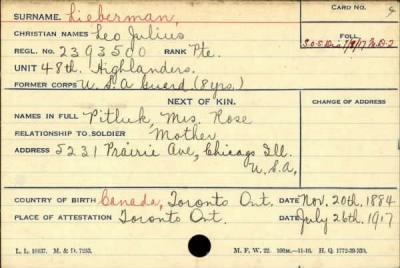 SURNAME. Lieberman,
CARD NO.
CHRISTIAN NAMES Leo Julius
FOLL.
REGL. No. 2393500 RANK Pte.
UNIT 48th. Highlanders.
FORMER CORPS U.S.A Guard (8 yrs.)
NEXT OF KIN.
CHANGE OF ADDRESS
NAMES IN FULL Pitluk, Mrs. Rose
RELATIONSHIP TO SOLDIER Mother
ADDRESS 5231 Prairie Ave, Chicago Ill.
U.S.A,
COUNTRY OF BIRTH Canada, Toronto Ont. DATE Nov. 20th. 1884
PLACE OF ATTESTATION Toronto Ont. DATE July 26th. 1917
L. L. 10437. M. & D. 7253.
M. F. W. 22. H. Q. 1772-39-339.